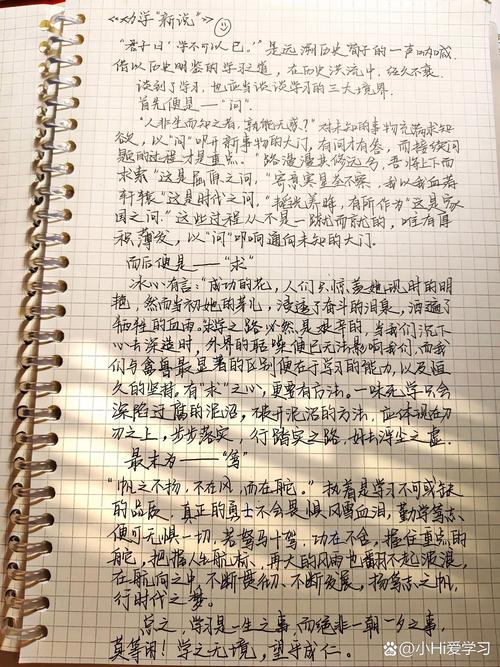 《劝学“新说”》
“君子曰:‘学不可以已。’”是远溯历史荀子的一声呐喊
借以历史明鉴的学习之道,在历史洪流中,经久不衰.
谈到了学习,也应当谈谈学习的三大境界.
首先便是——“问”.
“人非生而知之者,孰能无惑?”对未知的事物充满求知
欲,以“问”叩开新事物的大门,有问才有答,而接续问
题的过程才是重点。“路漫漫其修远兮,吾将上下而
求索”这是屈原之问,“寄意寒星荃不察,我以我血荐
轩辕”这是时代之问,有所作为”这是家
国之问”这些过程从不是一蹴而就的,唯有厚
积薄发,以“问”叩响通向未知的大门.
而后便是——“求”
冰心有言:“成功的花,人们只惊羡她现时的明
艳,然而当初她的芽儿,浸透了奋斗的泪泉,洒遍了
牺牲的血雨。求学之路必然是艰辛的,当我们沉下
心去深造时,外界的聒噪便已无法影响我们,而我
们与禽兽最显著的区别便在于学习的能力,以及恒
久的坚持。有“求”之心,更要有方法。一味死学只会
深陷迂腐的泥沼,破开泥沼的方法,应体现在刀
刃之上,步步落实,行踏实之路,好去浮尘之虚.
最末为——“笃”
“帆之不扬,不在风,而在舵。”执着是学习不可或缺
的品质,真正的勇士不会畏惧风雪血泪,勤学笃志,
便可无惧一切,若驽马十驾,功在不舍,握住重点的
舵,把指人生航标、再大的风雨也翻不起波浪,
在航向之中,不断贯彻、不断发展,扬笃志之帆,
行时代之梦。
总之,学习是一生之事,而绝非一朝一夕之事,
莫等闲!学之无境,望守成仁。
@小Hi爱学习